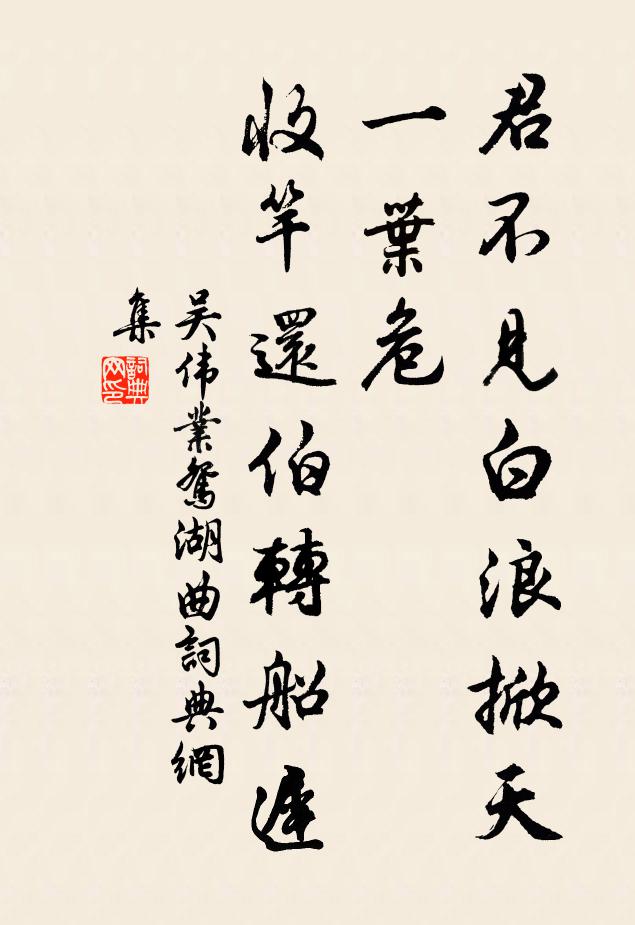 君不見白浪掀天
一葉危
收竿還伯轉船遲
吳伟業鴛湖曲詞典網
集
詞典网印